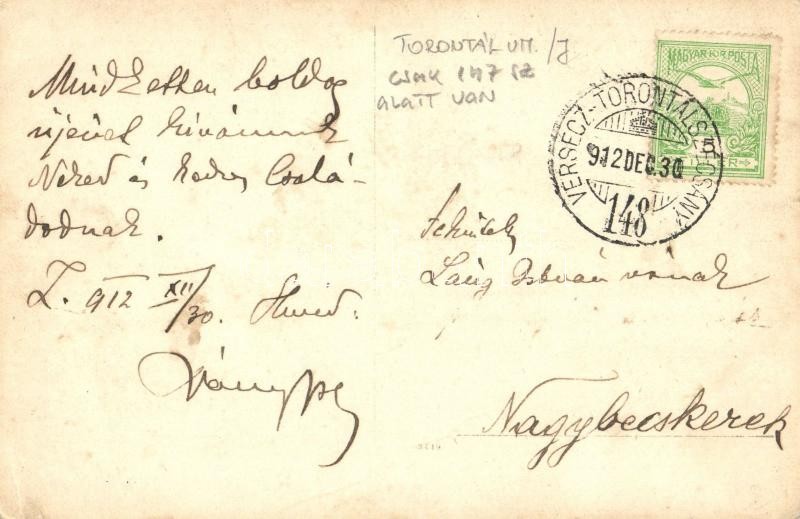 Mindketten boldog
újévet kívánunk
Neked és kedves Csalá-
dodnak.
Z. 912 XII/30.
TORONTÁL VM. /J
CSAK 147 SZ
ALATT VAN
MAGYAR KIR. POSTA
VERSECZ-TORONTÁLSZÉCSÁNY
912 DEC. 30
148
Láng István úrnak
Nagybecskerek